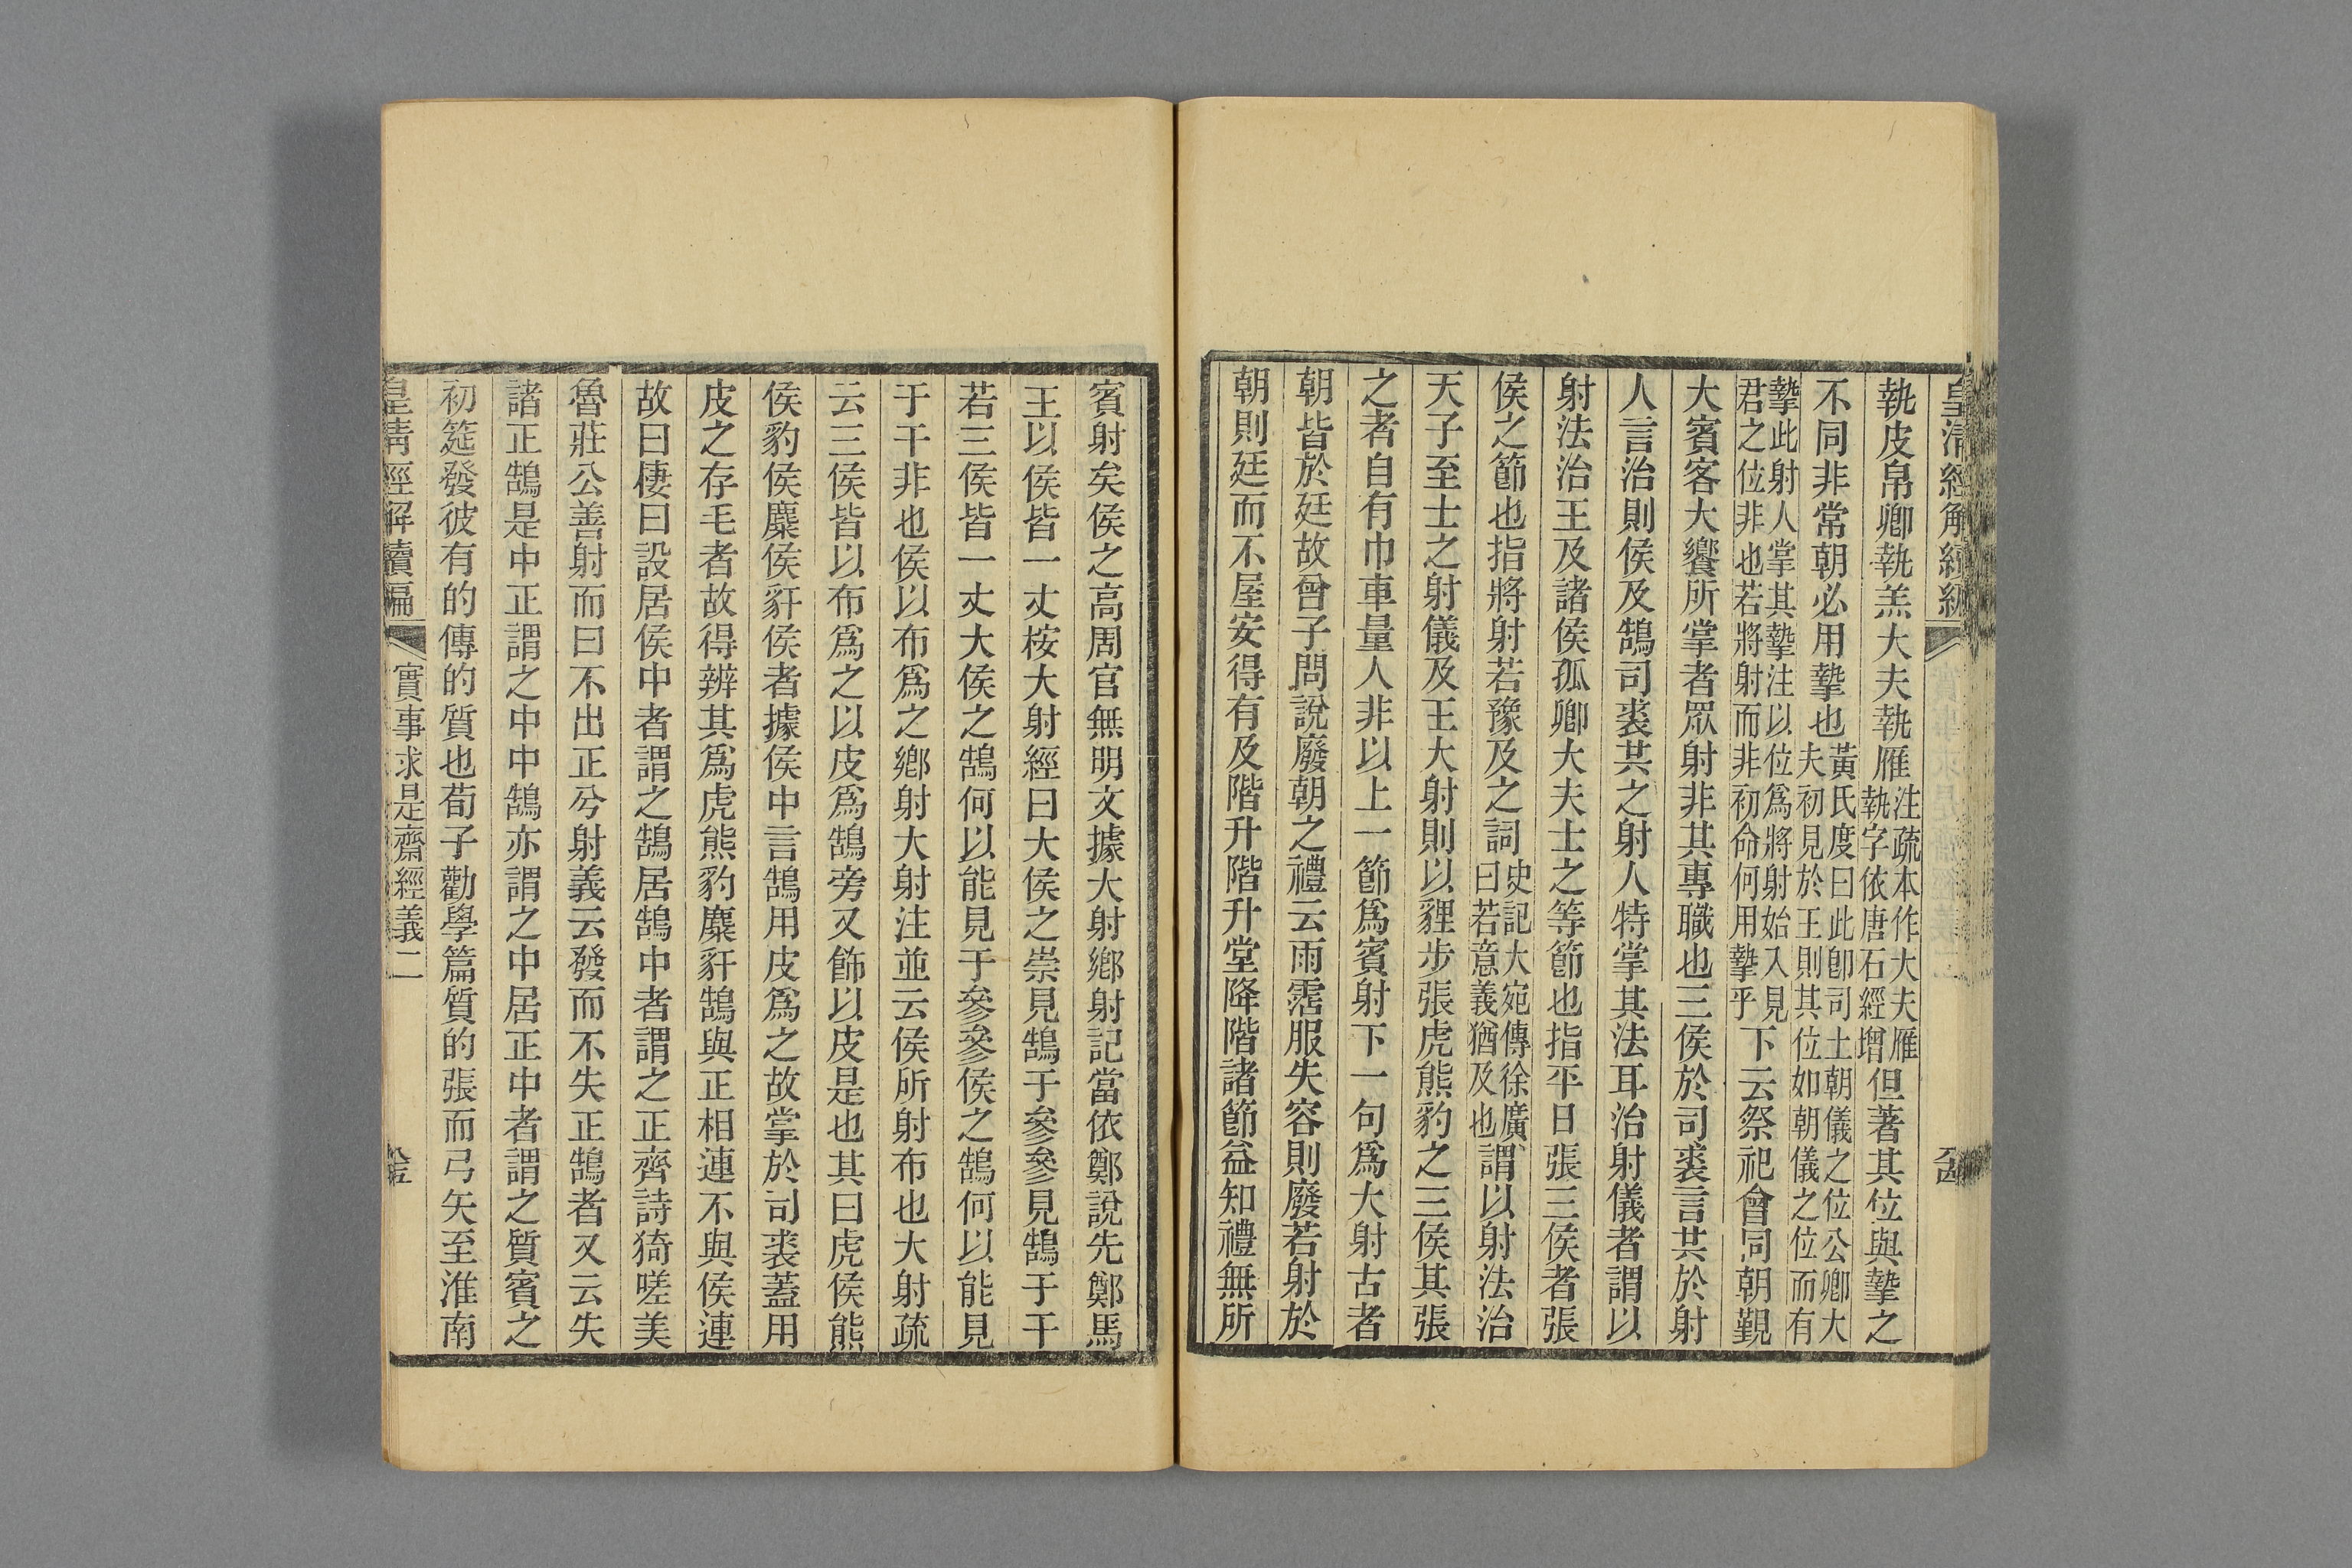 皇清經解續編
執皮帛卿執羔大夫執雁注疏本作大夫雁執字依唐石經增但著其位與摯之
不同非常朝必用摯也黃氏度曰此卽司士朝儀之位公卿大夫初見於王則其位如朝儀之位而有
摯此射人掌其摯注以位爲將射始入見君之位非也若將射而非初命何用摯乎下云祭祀會同朝覲
大賓客大饗所掌者眾射非其專職也三侯於司裘言共於射
人言治則侯及鵠司裘共之射人特掌其法耳治射儀者謂以
射法治王及諸侯孤卿大夫士之等節也指平日張三侯者張
侯之節也指將射若豫及之詞史記大宛傳徐廣曰若意義猶及也謂以射法治
天子至士之射儀及王大射則以貍步張虎熊豹之三侯其張
之者自有巾車量人非以上一節爲賓射下一句爲大射古者
朝皆於廷故曾子問說廢朝之禮云雨霑服失容則廢若射於
朝則廷而不屋安得有及階升階升堂降階諸節益知禮無所
賓射矣侯之高周官無明文據大射鄉射記當依鄭說先鄭馬
王以侯皆一丈桉大射經曰大侯之崇見鵠于參參見鵠于干
若三侯皆一丈大侯之鵠何以能見于參參侯之鵠何以能見
于干非也侯以布爲之鄉射大射注並云侯所射布也大射疏
云三侯皆以布爲之以皮爲鵠旁又飾以皮是也其曰虎侯熊
侯豹侯麋侯豻侯者據侯中言鵠用皮爲之故掌於司裘蓋用
皮之存毛者故得辨其爲虎熊豹麋豻鵠與正相連不與侯連
故曰棲曰設居侯中者謂之鵠居鵠中者謂之正齊詩猗嗟美
魯莊公善射而曰不出正兮射義云發而不失正鵠者又云失
諸正鵠是中正謂之中中鵠亦謂之中居正中者謂之質賓之
初筵發彼有的傳的質也荀子勸學篇質的張而弓矢至淮南
皇清經解續編 實事求是齋經義二